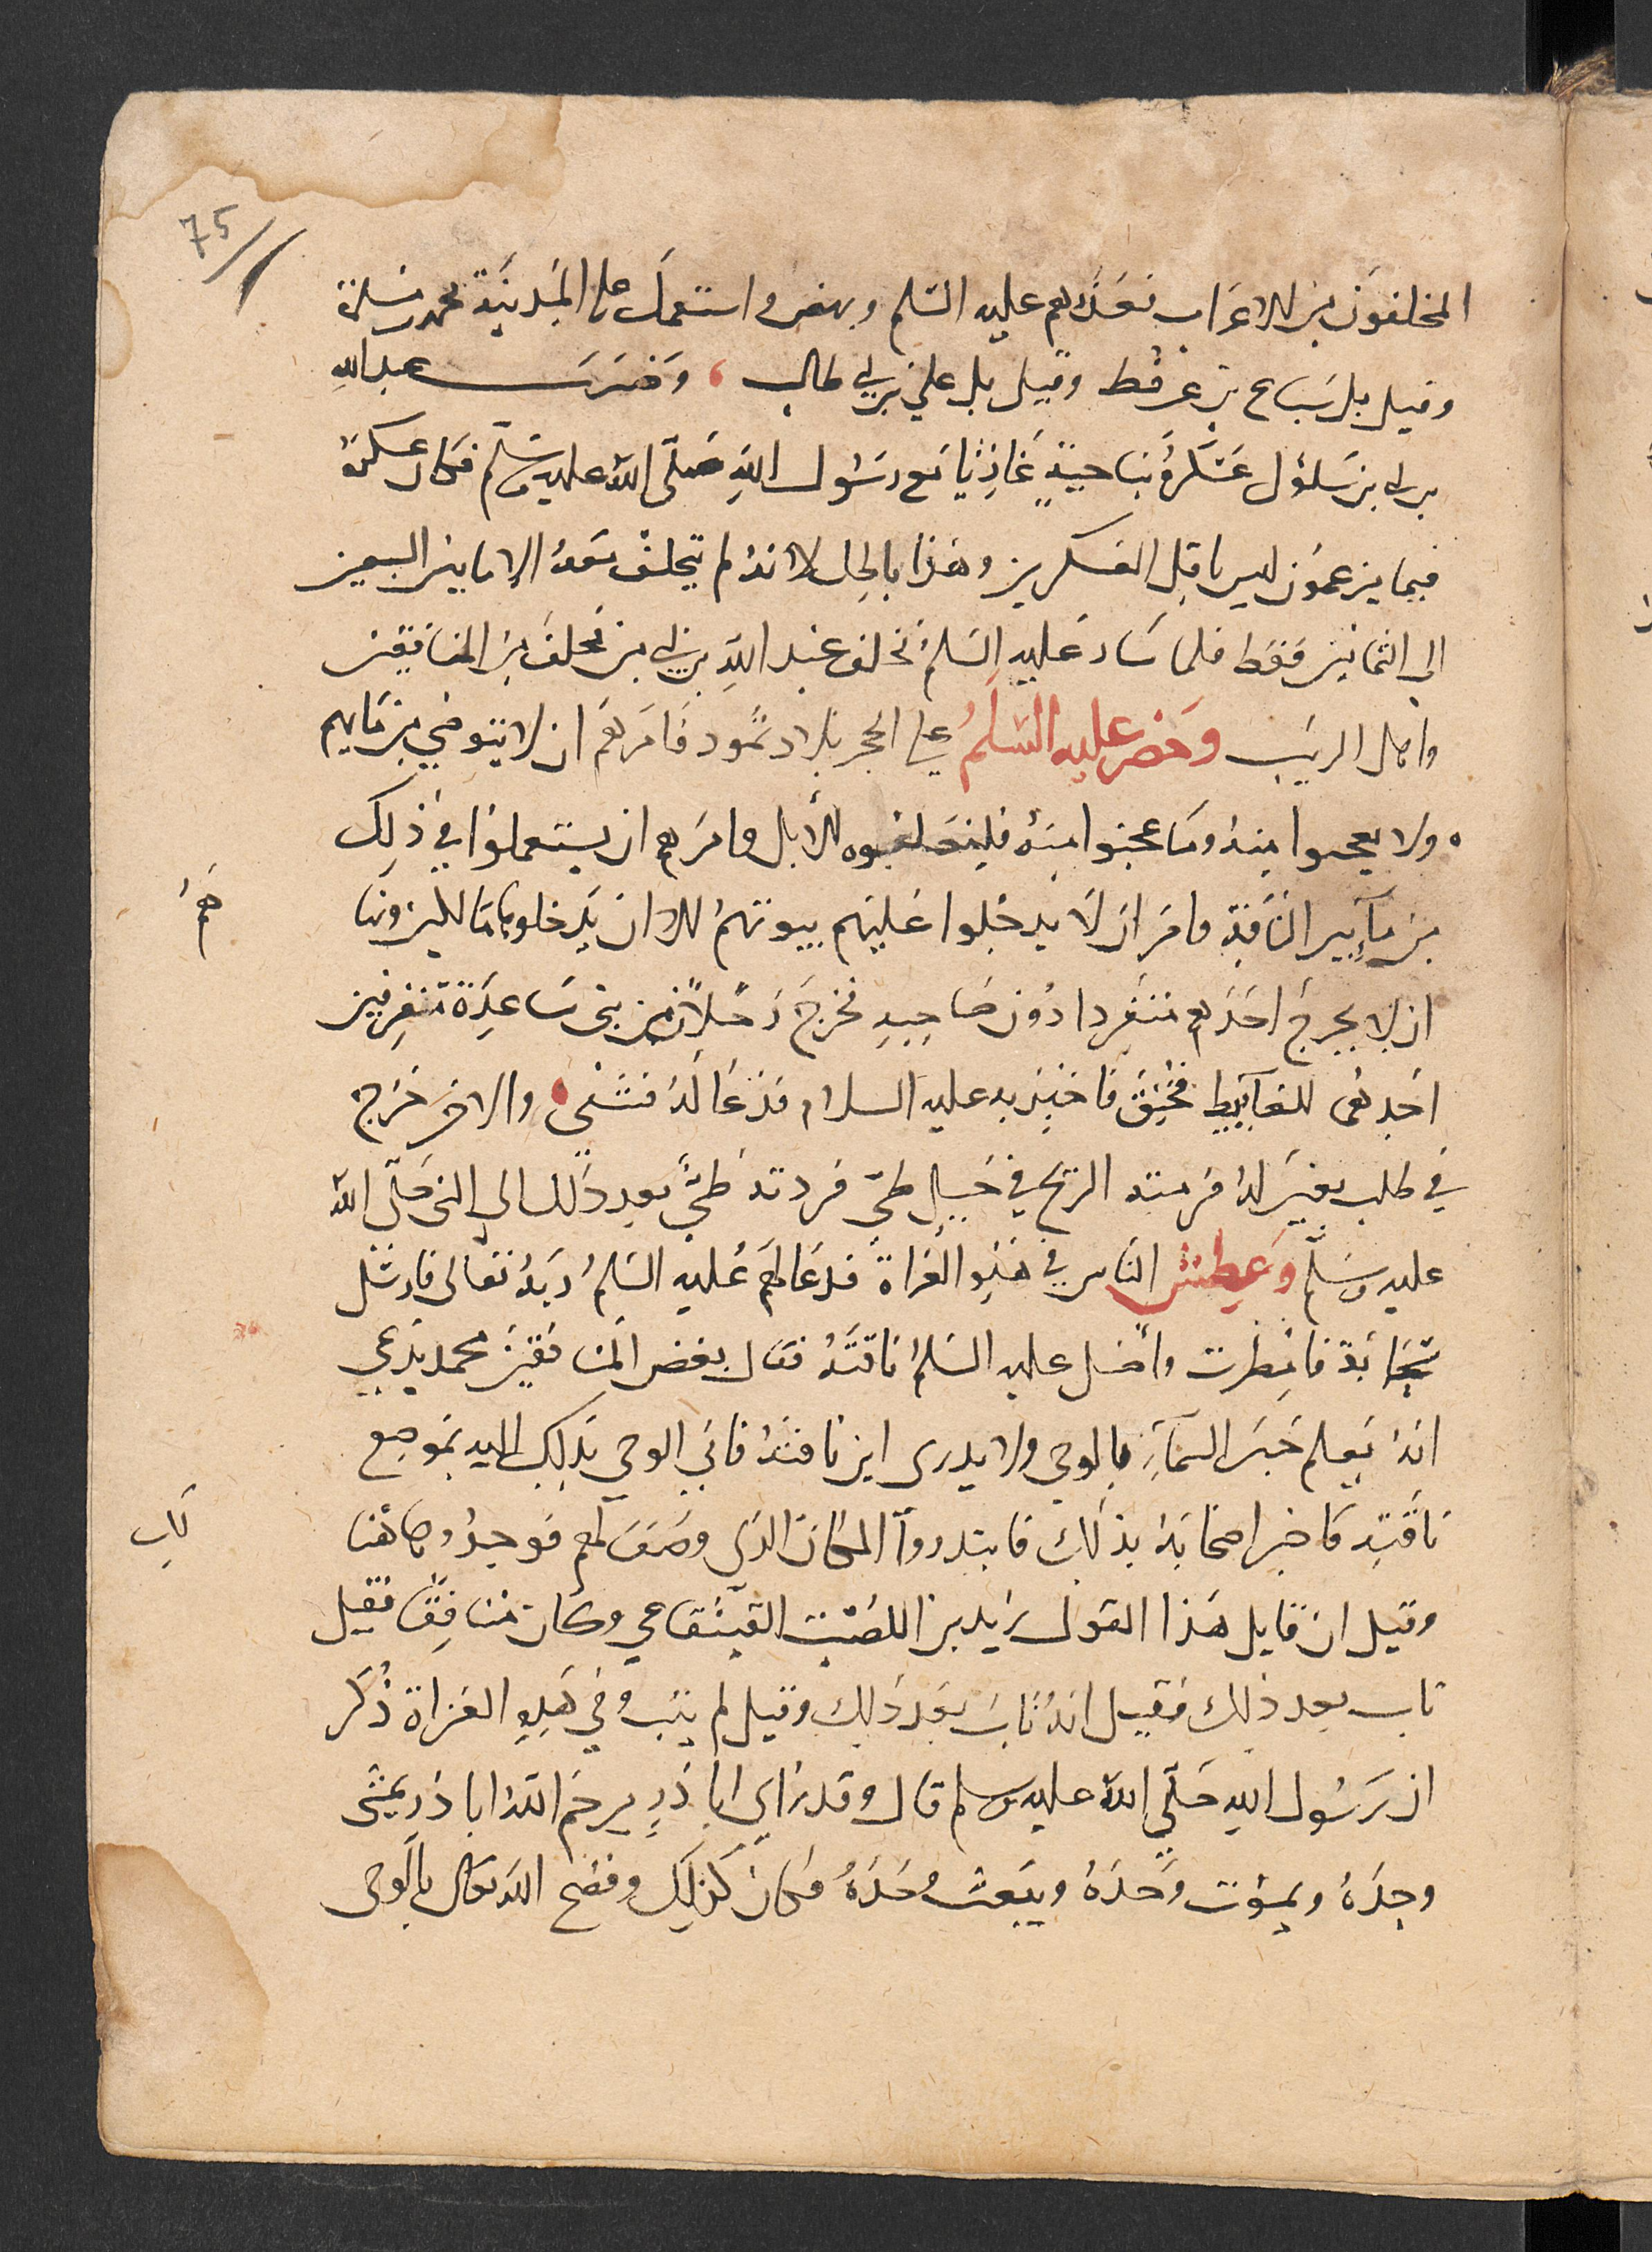 75
المخلفون من الاعراب فعذرهم عليه السلم ونهض واستعمل على المدينة محمد بن مسلمة
وقيل بل سباع بن عرفطة وقيل بل علي بن ابي طالب ، وضرب عبد الله
بن ابي بن سلول عسكره بناحية غازيا مع رسول الله صلى الله عليه وسلم فكان عسكره
فيما يزعمون ليس باقل العسكرين وهذا باطل لانه لم يتخلف بعده الا ما بين السبعين
الى الثمانين فقط فلما سار عليه السلم تخلف عبد الله بن ابي من تخلف من المنافقين
واهل الريب وخطر عليه السلم على الحجر بلاد ثمود فامرهم ان لا يتوضي من مايهم
ولا يعجنوا منه وما عجنوا منه فليعلفوه للابل وامرهم ان يستعملوا في ذلك
من مآء بير الناقة وامر ان لا يدخلوا عليهم بيوتهم الا ان يدخلوها
هم
ان لا يخرج احدهم منفردا دون صاحبه فخرج رجلان من بني ساعدة متفرقين
احدهما للغآيط فخنق فاخبر به عليه السلام فدعا له فشفى والاخر خرج
في طلب بعير له فرمته الريح في جبل طي فردته طي بعد ذلك الى النبي صلى الله
عليه وسلم وعطش الناس في هذه الغزاة فدعا لهم عليه السلم ربه تعالى فارسل
سحابة فامطرت واضل عليه السلم ناقته فقال بعض المنافقين محمد يدعي
انه يعلم خبر السمآء بالوحي ولا يدرى اين ناقته فاتى الوحي بذلك اليه بموضع
ناقته فاخبر اصحابه بذلك فابتدروا المكان الذي وصف لهم فوجدوها هنا
لك
وقيل ان قايل هذا القول زيد بن اللصيت القينقاعي وكان منافقا فقيل
تاب بعد ذلك فقيل انه تاب بعد ذلك وقيل لم يتب وفي هذه الغزاة ذكر
ان رسول الله صلى الله عليه وسلم قال وقد راى ابا ذر يرحم الله ابا ذر يمشي
وحده ويموت وحده ويبعث وحده فكان كذلك وفضح الله تعالى بالوحي